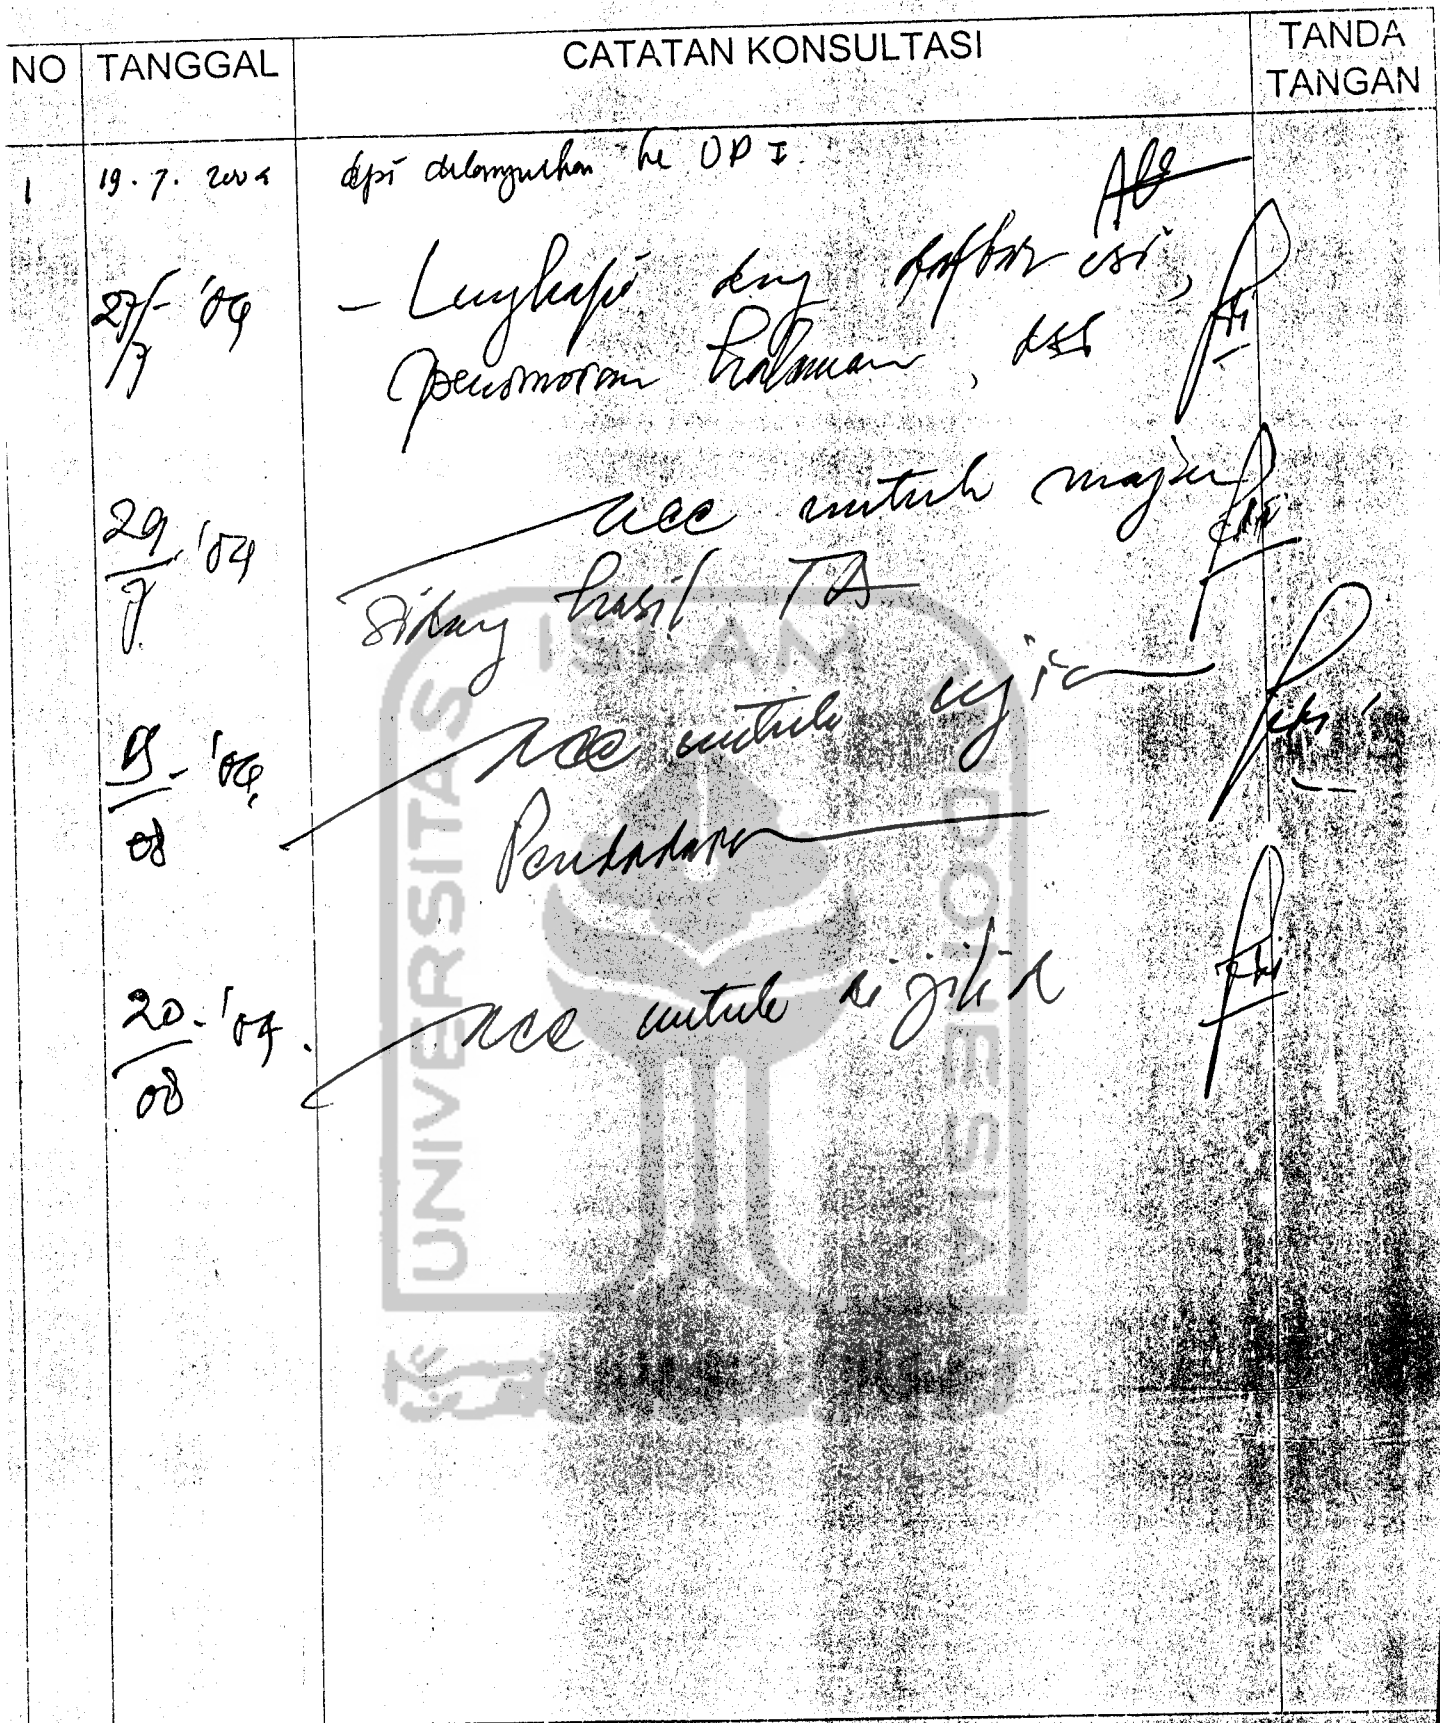 NO TANGGAL CATATAN KONSULTASI TANDA TANGAN
1 19.7.2004 dpt dilanjutkan ke DP I.
27/7 '04 - Lengkapi dng daftar isi,
penomoran halaman, dll
29/7 '04 acc untuk maju
sidang hasil TA
'04 acc untuk ujian
08 Pendadaran
20/08 '04. acc untuk dijilid
UNIVERSITAS ISLAM INDONESIA